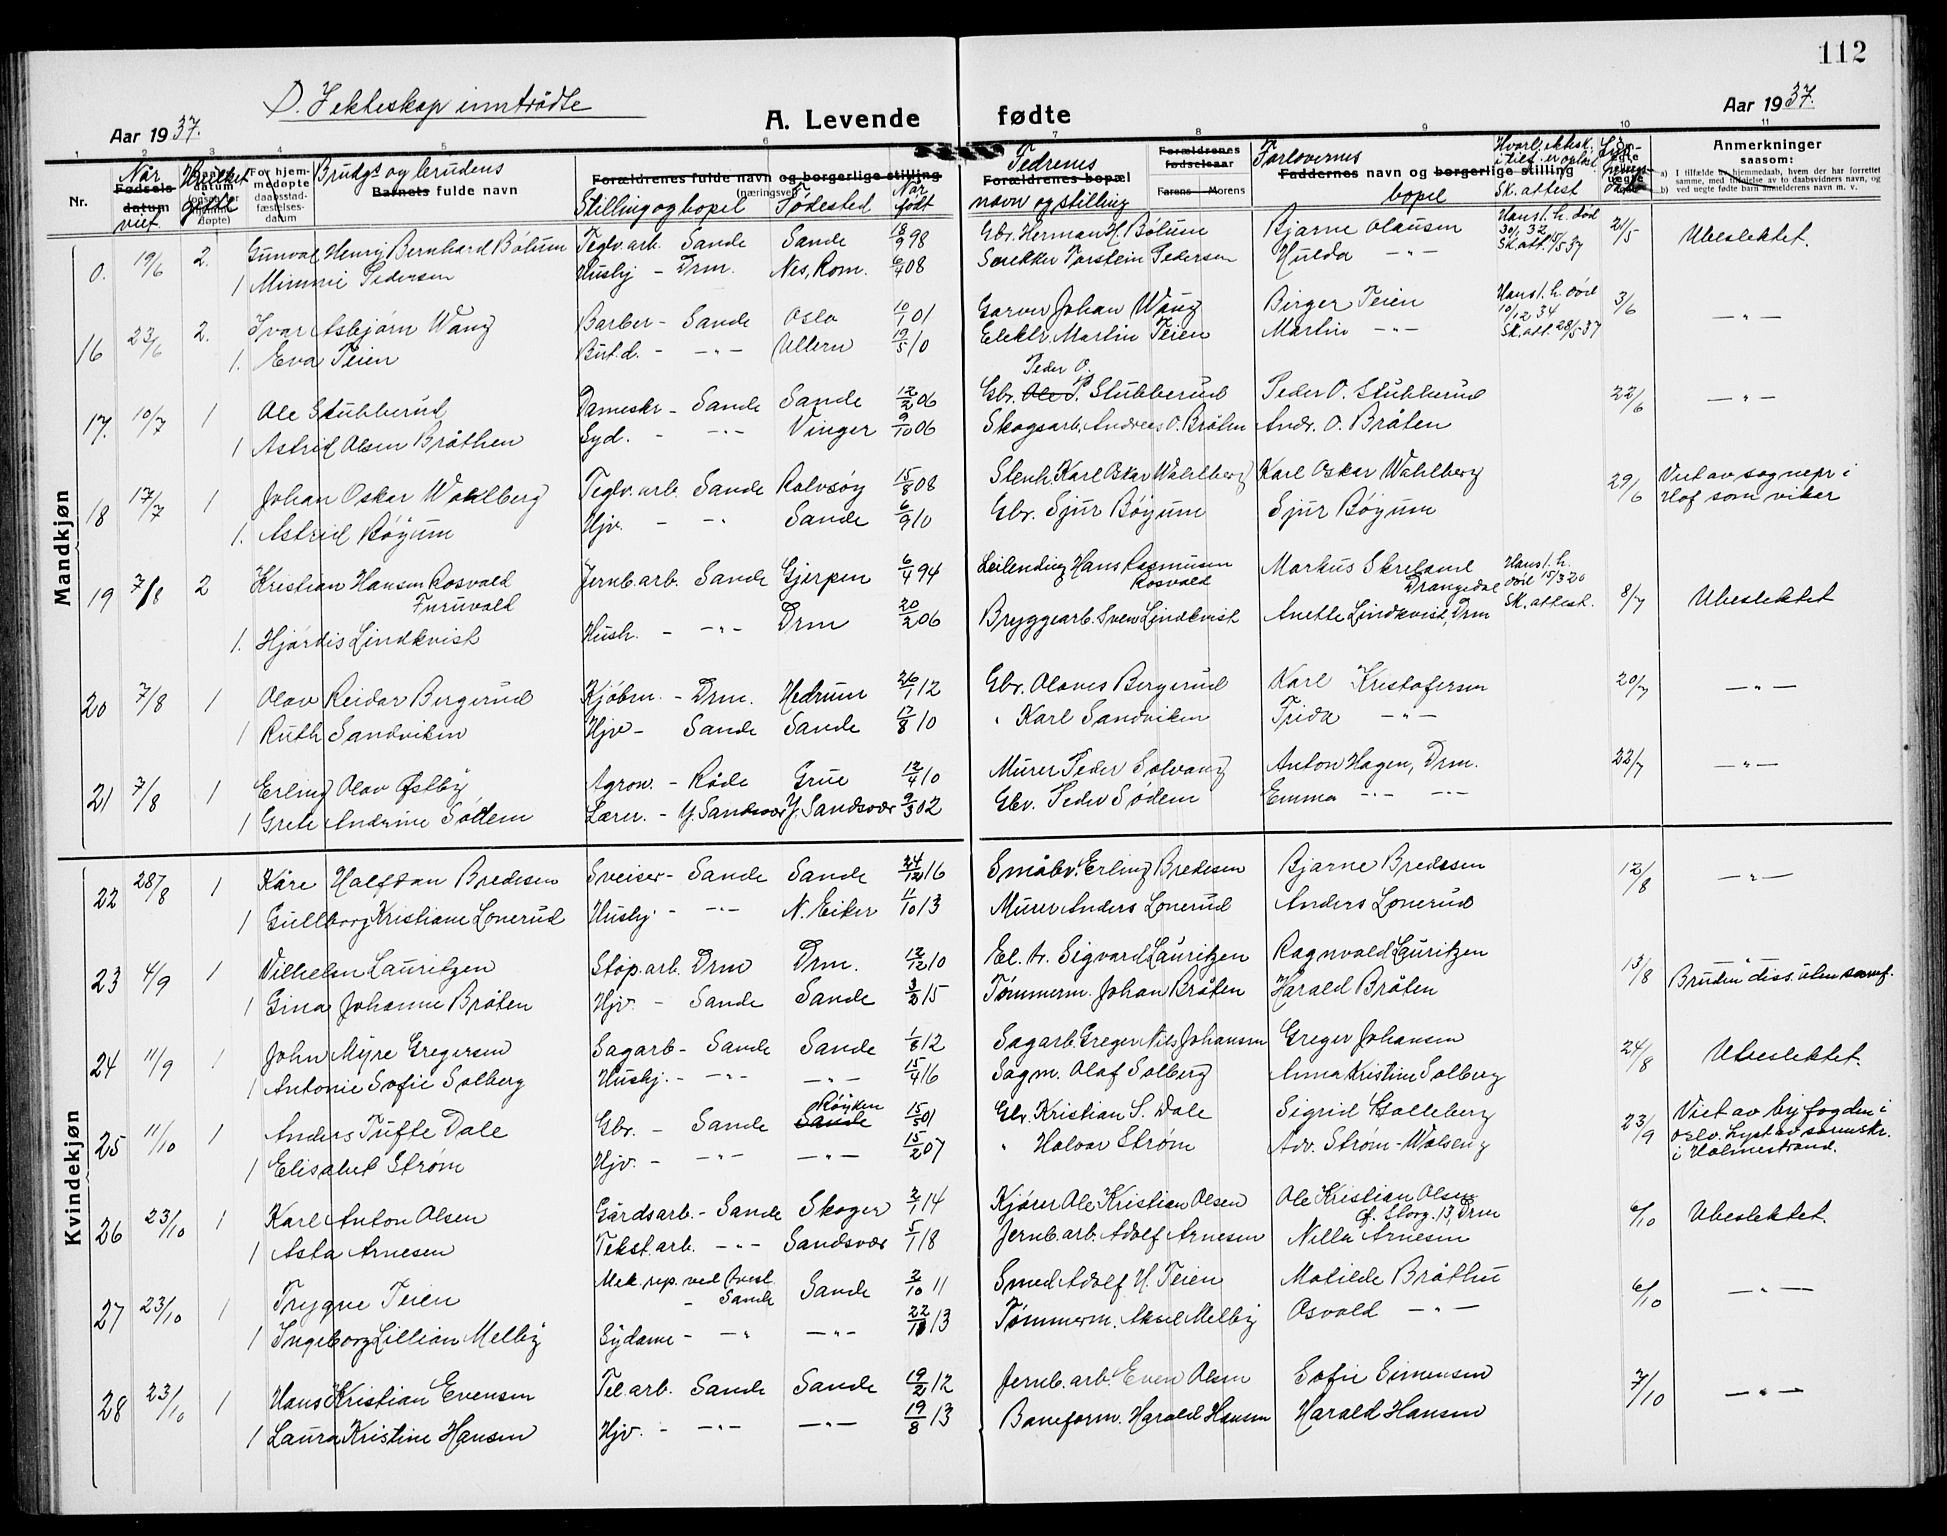 112
D. Ekteskap inntrådte
Aar 1937.
A. Levende fødte
Aar 1937.
1 2 3 4 5 6 7 8 9 10 11
Nr.
Når Fødselsdatum viet
Hvilket gifte
For hjemmedøpte daabsstadfæstelsesdatum
Brudgs og brudens
Barnets fulde navn
Forældrenes fulde navn og borgerlige stilling
(næringsvei)
Stilling og bopel Fødested Når født
Fedrenes
Forældrenes bopæl
navn og stilling
Forældrenes fødselsaar
Farens Morens
Forlovernes
Faddernes navn og borgerlige stilling
bopel
Sk. attest
Anmerkninger
saasom:
Mandkjøn
0. 19/6 2. Gunval Henry Bernhard Bölum Teglv.arb. Sande Sande 18/9 98 Gbr. Herman H. Bölum Bjarne Olausen Hans 1. h. död 30/1 32 Sk. att. 15/5 37 21/5 Ubeslektet.
1 Mimmi Pedersen Hushj - Drm. Nes, Rom. 6/4 08 Snekker Torstein Pedersen Hulda - " -
16 23/6 2. Ivar Asbjørn Wang Barber - Sande Oslo 10/1 01 Garver Johan Wang Birger Teien Hans 1. h. död 10/12 34 Sk. att. 28/5 37 3/6 - " -
1. Eva Teien But.d. - - " - Ullern 19/5 10 Elektr. Martin Teien Martin - " -
Peder O.
17. 10/7 1 Ole Stubberud Dameskr - Sande Sande 12/2 06 Gbr. Ole P. Stubberud Peder O. Stubberud 22/6 - " -
1 Astrid Olsen Bråthen Syd. - - " - Vinger 9/10 06 Skogsarb. Andreas O. Bråten Andr. O. Bråten
18 17/7 1 Johan Oskar Wahlberg Teglv.arb. Sande Rolvsöy 15/8 08 Stenh. Karl Oskar Wahlberg Karl Oskar Wahlberg 29/6 Viet av sognepr i Hof som vikar
1. Astrid Böyum Hjv. - - " Sande 6/9 10 Gbr. Sjur Böyum Sjur Böyum
19 7/8 2 Kristian Hansen Rosvald Furuvald Jernb.arb. Sande Gjerpen 6/4 94 Leilending Hans Rasmusen Rosvald Markus Skrelame Drangedal Hans 1. h. död 15/3 20 Sk. attest. 8/7 Ubeslektet
1. Hjördis Lindkvist Hush. - - " - Drm 20/2 06 Bryggearb. Sven Lindkvist Anette Lindkvist, Drm
20 7/8 1 Olav Reidar Bergerud Kjöbm. - Drm. Hedrum 26/1 12 Gbr. Olaves Bergerud Karl Kristofersen 20/7 - " -
1 Ruth Sandviken Hjv - Sande Sande 17/8 10 " Karl Sandviken Frida - " -
21 7/8 1 Erling Olav Østby Agron. - Råde Grue 12/4 10 Murer Peder Solvang Anton Hagen, Drm. 22/7 - " -
1 Grete Andrine Södem Lærer. - Y. Sandsvær Y. Sandsvær 9/3 02 Gbr. Peder Södem Emma - " - - " -
Kvindekjøn
22 28/8 1 Kåre Halfdan Bredesen Sveiser - Sande Sande 24/12 16 Småbr. Erling Bredesen Bjarne Bredesen 12/8 - " -
1 Gullborg Kristiane Lonerud Hushj. - - " - N. Eiker 11/10 13 Murer Anders Lonerud Anders Lonerud
23 4/9 1 Vilhelm Lauritzen Støp.arb. Drm Drm. 12/12 10 El. tr. Sigvard Lauritzen Ragnvald Lauritzen 13/8 Bruden diss. uten samf.
1 Gina Johanne Bråten Hjv. - Sande Sande 3/2 15 Tømmerm. Johan Bråten Harald Bråten
24 11/9 1 John Myre Gregersen Sagarb - Sande Sande 1/8 12 Sagarb. Greger Nils Johansen Greger Johansen 24/8 Ubeslektet.
1 Antonie Sofie Solberg Hushj. - - " - - " - 15/4 16 Sagm. Olaf Solberg Anna Kristine Solberg
25 11/10 1 Anders Tufte Dale Gbr. - Sande Röyken Sande 15/5 01 Gbr. Kristian S. Dale Sigrid Golleberg 23/9 Viet av byfogden i Oslo. Lyst av sorenskr. i Holmestrand.
1 Elisabet Strøm Hjv. - - " - - " - 15/2 07 " Halvor Strøm Adv. Strøm-Walseng
26 23/10 1 Karl Anton Olsen Gårdsarb. - Sande Skoger 2/1 14 Kjörer Ole Kristian Olsen Ole Kristian Olsen 6/10 Ubeslektet.
Ø. Storg. 13, Drm
1 Asta Arnesen Tekst.arb. - " - Sandsvær 5/1 18 Jernb.arb. Adolf Arnesen Nilla Arnesen
27 23/10 1 Trygve Teien Mek.rep. ved - Sande Sande 2/10 11 Smed Adolf H. Teien Matilde Bråthen 6/10 - " -
1 Ingeborg Lillian Melby Sydame - - " - " - 22/10 13 Tømmerm. Aksel Melby Osvald - " -
28 23/10 1 Hans Kristian Evensen Tel.arb. Sande Sande 19/2 12 Jernb.arb. Even Olsen Sofie Simensen 7/10 - " -
1 Laura Kristine Hansen Hjv. - - " - - " - 19/8 13 Baneform. Harald Hansen Harald Hansen